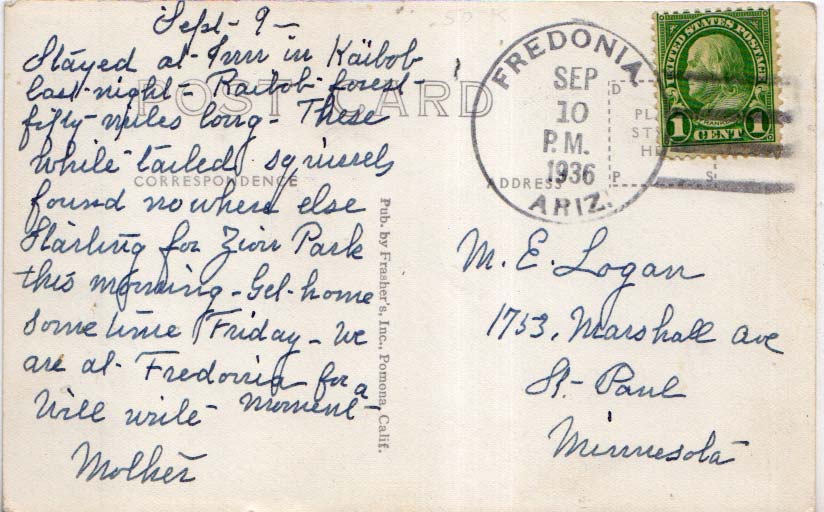 Sept - 9 -
Stayed at Inn in Kaibob
last night - Kaibob forest -
fifty miles long - These
white tailed squirrels
found nowhere else
Starting for Zion Park
this morning - Get home
some time Friday - We
are at Fredonia for a
moment -
Will write -
Mother
POST CARD
CORRESPONDENCE
ADDRESS
Pub. by Frasher's, Inc., Pomona, Calif.
FREDONIA
SEP
10
P.M.
1936
ARIZ.
UNITED STATES POSTAGE
FRANKLIN
1 CENT 1
M. E. Logan
1753, Marshall Ave
St - Paul
Minnesota